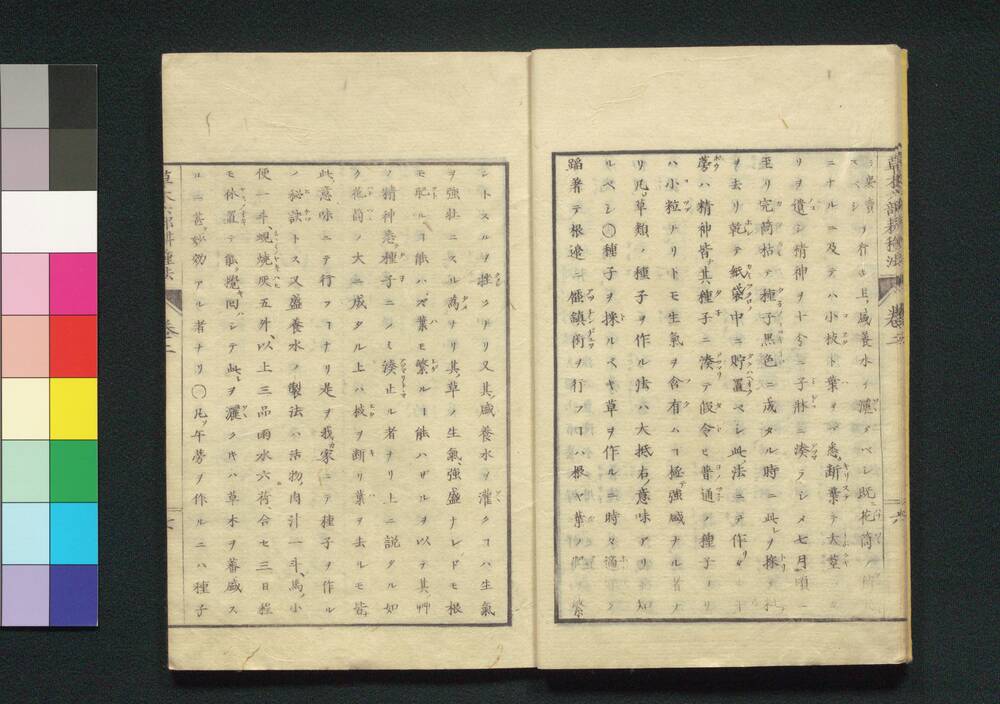 ニナルニ及テハ小枝ト葉ヲバ悉断葉テ大莖
リヲ遺シ精神ヲ十分ニ子牀ニ湊ラシメ七月頃ニ
至リ完筒枯テ種子黒色ニ成タル時ニ此レヲ採テ
ヲ去リ乾テ紙袋中ニ貯置ベシ此法ニテ作リタ
蒡ハ精神皆其種子ニ湊テ仮令ヒ普通ノ種子ヨリ
ハ小粒ナリトモ生氣ヲ含有ハコ極テ強盛ナル者ナ
リ凡ソ草類ノ種子ヲ作ル法ハ大抵右ノ意味アリ知
ルベシ○種子ヲ採ルベキ草ヲ作ルニ時々適
蹈著テ根邊ニ壓鎮術ヲ行フコハ根ヤ葉ノ 繁
ントスルヲ挫クナリ又其盛養水ヲ灌クコハ生氣
ヲ強壮ニスル為リ其草ノ生氣強盛ナレドモ根
モ肥ルコ能ハズ葉モ繁ルコ能ハザルヲ以テ其艸
ノ精神悉ク種子ニノミ湊止ル者ナリ上ニ説タル如
ク花筒ノ大ニ成タル上ハ枝ヲ断リ葉ヲ去ルモ皆
此意味ニテ行フコナリ是ヲ我家ニテ種子ヲ作ル
ノ秘訣トス又盛養水ノ製法ハ活物肉汁一斗、馬ノ小
便一斗、蜆焼灰五升、以上三品雨水六荷、合セ三日程
モ休置テ能攪回シテ此ヲ灌クキハ草木ヲ蕃盛ス
ルニ甚妙効アル者ナリ○凡ソ牛蒡ヲ作ルニハ種子
草木六部耕種法 巻二 六